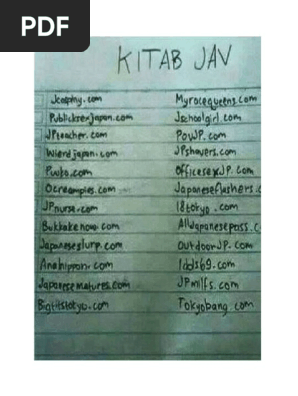 PDF
KITAB JAV
Jcosplay.com Myracequeens.com
Publicsexjapan.com Jschoolgirl.com
JPteacher.com PovJP.com
Wierdjapan.com JPshavers.com
OfficesexJP.com
Ocreampies.com Japaneseflashers.c
JPnurse.com 18tokyo.com
Bukkakenow.com Alljapanesepass.c
Japaneseslurp.com OutdoorJP.com
Analnippon.com Idols69.com
Japanesematures.com JPmilfs.com
Bigtitstokyo.com Tokyobang.com